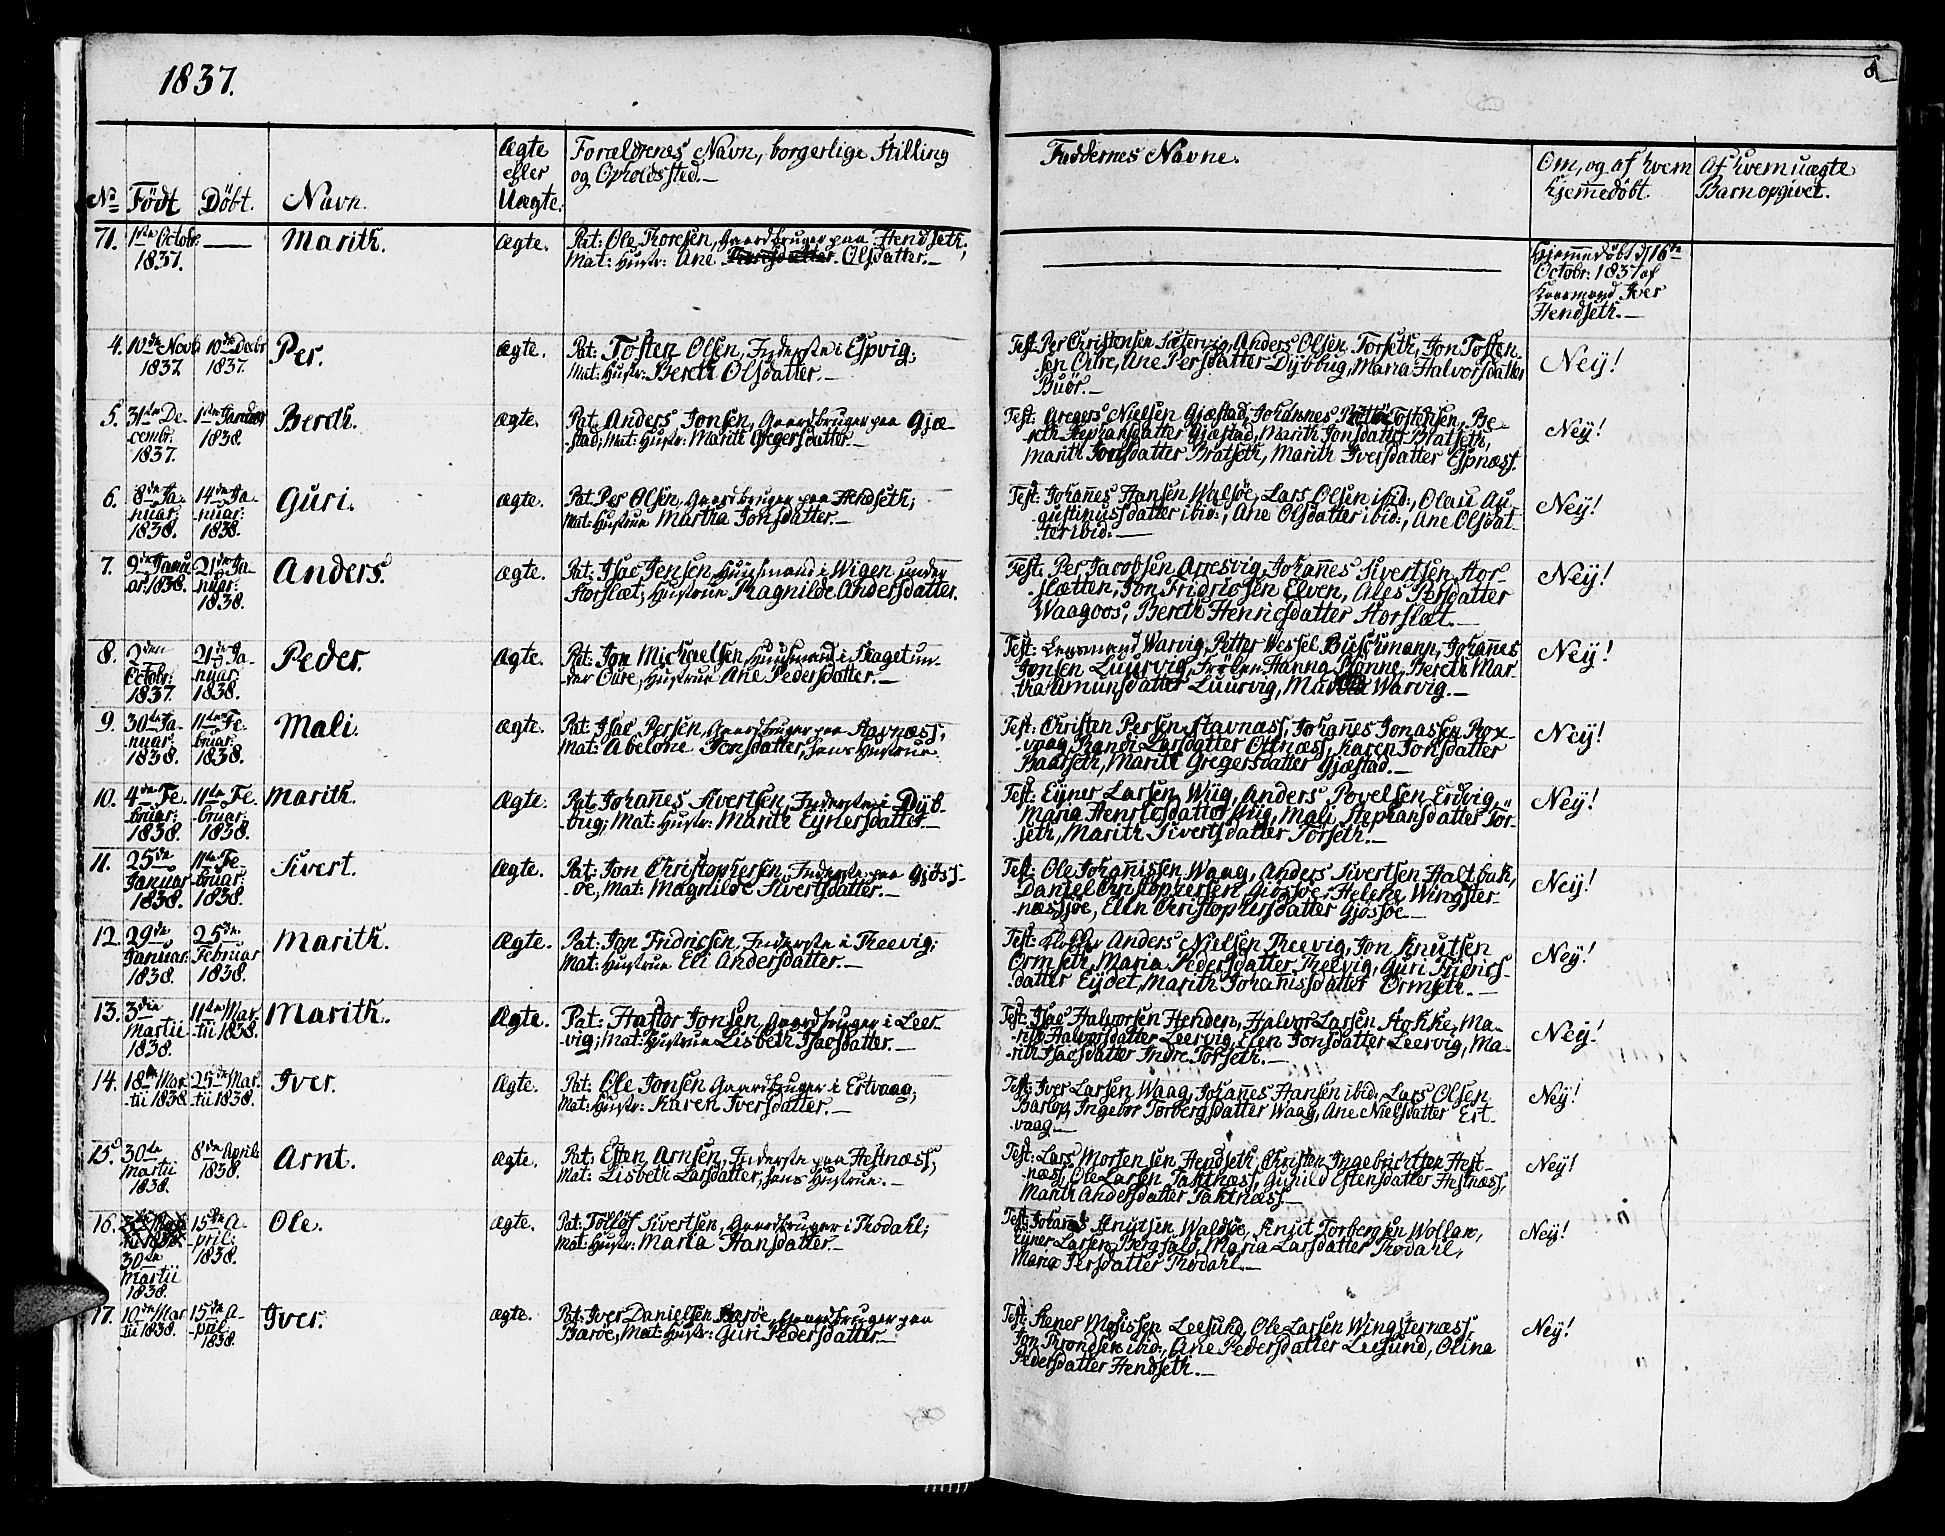 1837.
8
Ægte
eller
Uægte.
Forældrenes Navn, borgerlige Stilling
og Opholdssted.
Faddernes Navne.
Om, og af hvem
hjemmedøbt.
Af hvem uægte
Barn opgivet.
No Født Døbt. Navn.
71. 1ste Octobr: 1837. — Marith. Ægte.
Pat: Ole Thoresen, Gaardbruger paa Hendseth;
Mat: Hustr: Ane Olsdatter.
Hjemmedøbt d. 16de
Octobr: 1837 af
Iver
Hendseth.
4. 10de Novb 1837. 10de Decbr 1837. Per. Ægte.
Pat: Tosten Olsen, Inderste i Espvig;
Mat: Hustr: Bereth Olsdatter.
Test: Per Christensen Sætervig, Anders Olsen Torseth, Jon Tosten-
sen Oure, Ane Persdatter Dybbug, Maria Halvorsdatter
Buör.
Neÿ!
5. 31te Decembr: 1837. 1ste Januar 1838. Bereth. Ægte.
Pat: Anders Jonsen, Gaardbruger paa Gjæ-
stad; Mat: Hustr: Marith Gregersdatter.
Test: Gregers Nielsen Gjæstad, Johannes Tostensen, Be-
reth Stephansdatter Gjæstad, Marith Jonsdatter Bratseth,
Marith Jonsdatter Bratseth, Marith Iversdatter Espnæss.
Neÿ!
6. 8de Januar: 1838. 14de Januar: 1838. Guri. Ægte.
Pat: Per Olsen, Gaardbruger paa Hendseth;
Mat: Hustrue Martha Jonsdatter.
Test: Johannes Hansen Walsöe, Lars Olsen ibid:, Olau Au-
gustinussdatter ibid:, Ane Olsdatter ibid:, Ane Olsdat-
ter ibid:
Neÿ!
7. 9de Januar 1838. 21de Januar: 1838. Anders. Ægte.
Pat: Isac Jensen, Huusmand i Wigen under
Storslæt; Hustrue Ragnilde Andersdatter.
Test: Per Jacobsen Arresvig, Johannes Sivertsen Stor-
slætten, Jon Fridricsen Elven, Ales Persdatter
Waagoos, Bereth Henricsdatter Storslæt.
Neÿ!
8. 2den Octobr: 1837. 21de Januar: 1838. Peder. Ægte.
Pat: Jon Michaelsen, Huusmand i Skaget un-
der Oure, Hustrue Ane Pedersdatter.
Test: Leensmand Warvig, Petter Wessel Buschmann, Johannes
Jonsen Luurvig, Frøken Hanna Bonne, Bereth Mar-
tha Amunsdatter Luurvig, Warvig.
Neÿ!
9. 30te Januar: 1838. 11te Februar: 1838. Mali. Ægte.
Pat: Isac Persen, Gaardbruger paa Stavnæss;
Mat: Abelone Jonsdatter, hans Hustrue.
Test: Christen Persen Stavnæss, Johannes Jonassen Rox-
vaag, Randi Larsdatter Ottnæss, Karen Jonsdatter
Baatseth, Marith Gregersdatter Gjæstad.
Neÿ!
10. 4de Februar: 1838. 11te Februar: 1838. Marith. Ægte.
Pat: Johannes Sivertsen, Inderste i Dÿb-
bug; Mat: Hustr: Marith Eÿnersdatter.
Test: Eÿner Larsen Wiig, Anders Povelsen Ertvig,
Maria Henricsdatter Wiig, Mali Stephansdatter Tor-
seth, Marith Sivertsdatter Torseth.
Neÿ!
11. 25de Januar 1838. 11te Februar: 1838. Sivert. Ægte.
Pat: Jon Christophersen, Inderste paa Gjöss-
öe, Mat: Magnilde Sivertsdatter.
Test: Ole Johanissen Waag, Anders Sivertsen Haltbak,
Daniel Christophersen Gjössöe, Helene Wingster-
næssjöe, Elen Christophersdatter Gjössöe.
Neÿ!
12. 29de Januar: 1838. 25de Februar 1838. Marith. Ægte.
Pat: Jon Fridricsen, Inderste i Theevig;
Mat: Hustrue Eli Andersdatter.
Test: Anders Nielsen Theevig, Jon Knutsen
Ormseth, Maria Pedersdatter Theevig, Guri
datter Eÿdet, Marith Johanisdatter Ormseth.
Neÿ!
13. 3die Martii 1838. 11te Martii 1838. Marith. Ægte.
Pat: Hastor Jonsen, Gaardbruger i Leer-
vig; Mat: Hustrue Lisbeth Isacsdatter.
Test: Isac Halvorsen Henden, Halvor Larsen Stokke, Ma-
rith Halvorsdatter Leervig, Elen Jonsdatter Leervig, Ma-
rith Isacsdatter Indre Torseth.
Neÿ!
14. 18de Martii 1838. 25de Martii 1838. Iver. Ægte.
Pat: Ole Jonsen Gaardbruger i Ertvaag;
Mat: Hustr: Karen Iversdatter.
Test: Iver Larsen Waag, Johannes Hansen ibid:, Lars Olsen
Barlop, Ingebor Torbergsdatter Waag, Ane Nielsdatter Ert-
vaag.
Neÿ!
15. 30te Martii 1838. 8de April 1838. Arnt. Ægte.
Pat: Esten Arnsen, Inderste paa Hestnæss;
Mat: Lisbeth Larsdatter, hans Hustrue.
Test: Lars Mortensen Hendseth, Christen Ingebrichtsen Hest-
næss, Ole Larsen Taktnæss, Gunild Estensdatter Hestnæss,
Marith Andersdatter Taktnæss.
Neÿ!
16. 30te Martii 1838. 15de April: 1838. Ole. Ægte.
Pat: Tollöf Sivertsen, Gaardbruger i Thodahl;
Mat: Hustr: Maria Hansdatter.
Test: Johannes Knutsen Waldsöe, Knut Torbergsen Wollan,
Eÿner Larsen Bergsald, Maria Larsdatter Thodahl,
Maria Persdatter Thodahl.
Neÿ!
17. 10de Martii 1838. 15de April 1838. Iver. Ægte.
Pat: Iver Danielsen Barøe, Gaardbruger paa
Baröe, Mat: Hustr: Guri Pedersdatter.
Test: Stener Mosissen Leesund, Ole Larsen Wingsternæss,
Jon Throndsen ibid:, Ane Pedersdatter Leesund, Olina
Pedersdatter Hendseth.
Neÿ!